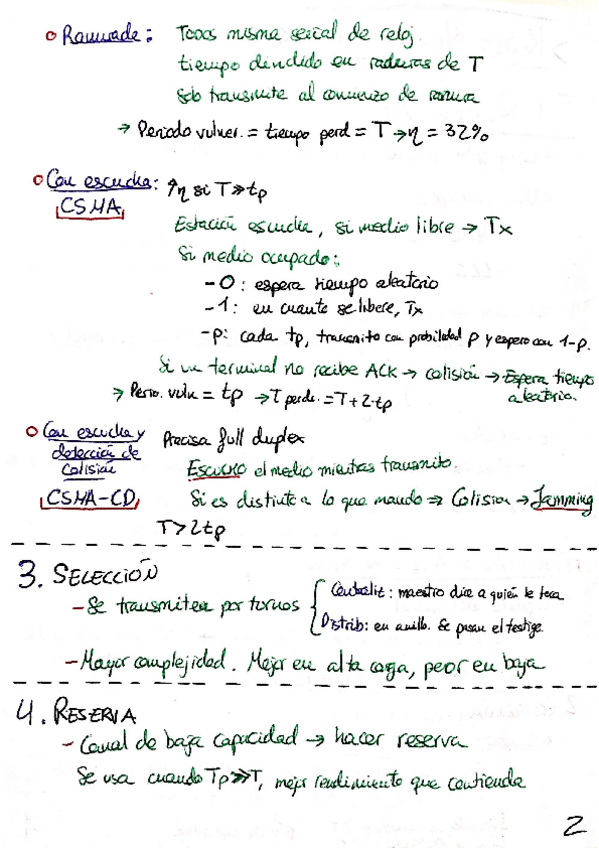 o Ranurado: Todos misma señal de reloj
tiempo dividido en ranuras de T
Sólo transmite al comienzo de ranura
→ Periodo vulner. = tiempo perd = T → η = 32%
o Con escucha: ↑η si T≫tp
CSMA
Estación escucha, si medio libre → Tx
Si medio ocupado:
- 0: espera tiempo aleatorio
- 1: en cuanto se libere, Tx
- p: cada tp, transmito con probabilidad p y espero con 1-p.
Si un terminal no recibe ACK → colisión → Espera tiempo
aleatorio.
→ Perio. vuln = tp → T perdi. = T + 2·tp
o Con escucha y
detección de
Colisión
Precisa full duplex
Escucho el medio mientras transmito.
CSMA-CD
Si es distinto a lo que mando ⇒ Colision → Jamming
T > 2tp
3. SELECCIÓN
- Se transmiten por turnos
Centraliz: maestro dice a quién le toca
Distrib: en anillo. Se pasan el testigo.
- Mayor complejidad. Mejor en alta carga, peor en baja
4. RESERVA
- Canal de baja capacidad → hacer reserva
Se usa cuando Tp≫T, mejor rendimiento que contienda
2